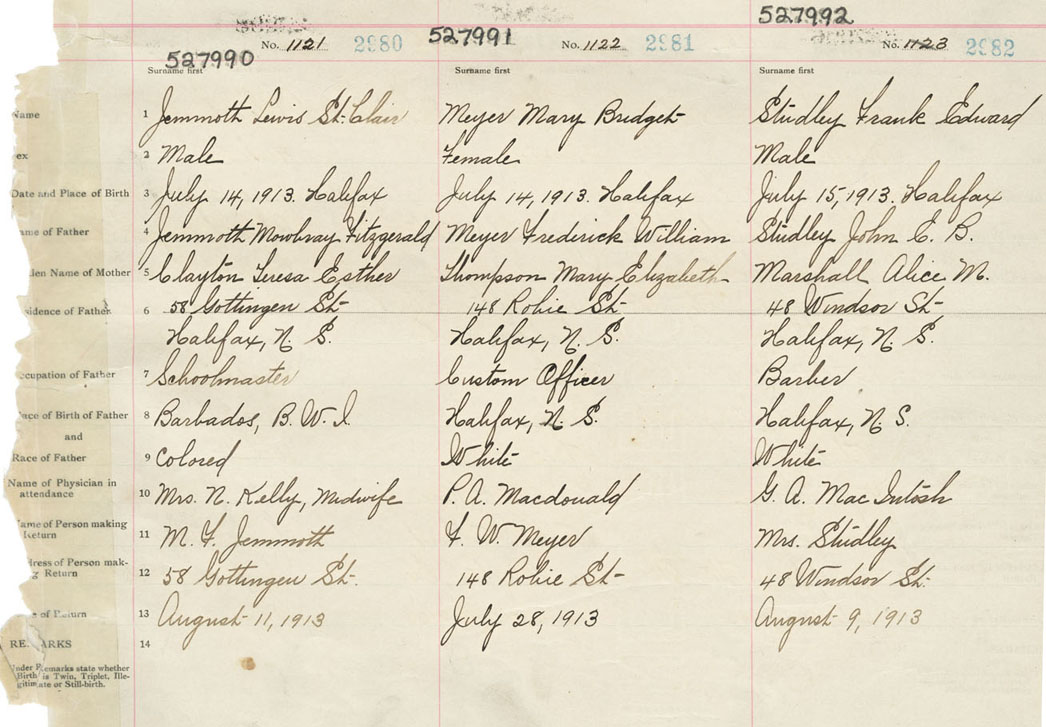 527992
527990 No. 1121 2980 527991 No. 1122 2981 No. 1123 2982
Surname first Surname first Surname first
Name 1 Jemmoth Lewis St. Clair Meyer Mary Bridget Studley Frank Edward
ex 2 Male Female Male
Date and Place of Birth 3 July 14, 1913. Halifax July 14, 1913. Halifax July 15, 1913. Halifax
ame of Father 4 Jemmoth Mowbray Fitzgerald Meyer Frederick William Studley John E. B.
den Name of Mother 5 Clayton Teresa Esther Thompson Mary Elizabeth Marshall Alice M.
sidence of Father 6 58 Gottingen St. 148 Robie St. 48 Windsor St.
Halifax, N. S. Halifax, N. S. Halifax, N. S.
ccupation of Father 7 Schoolmaster Custom Officer Barber
lace of Birth of Father 8 Barbados, B. W. I. Halifax, N. S. Halifax, N. S.
and
Race of Father 9 Colored White White
Name of Physician in
attendance 10 Mrs. N. Kelly, Midwife P. A. Macdonald G. A. Mac Intosh
ame of Person making
Return 11 M. F. Jemmoth F. W. Meyer Mrs. Studley
dress of Person mak-
g Return 12 58 Gottingen St. 148 Robie St. 48 Windsor St.
e of Return 13 August 11, 1913 July 28, 1913 August 9, 1913
REMARKS 14
nder Remarks state whether
Birth is Twin, Triplet, Ille-
gitimate or Still-birth.